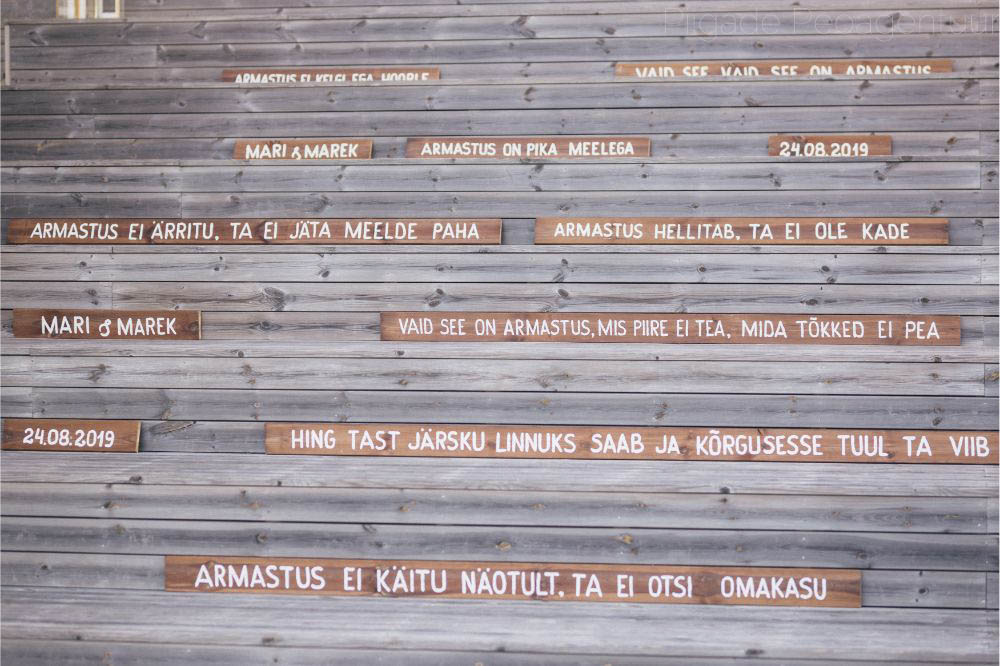 Pilgade Peoagentuur
ARMASTUS EI KELGI EGA HOOPLE
VAID SEE VAID SEE ON ARMASTUS
MARI & MAREK
ARMASTUS ON PIKA MEELEGA
24.08.2019
ARMASTUS EI ÄRRITU, TA EI JÄTA MEELDE PAHA
ARMASTUS HELLITAB, TA EI OLE KADE
MARI & MAREK
VAID SEE ON ARMASTUS, MIS PIIRE EI TEA, MIDA TÕKKED EI PEA
24.08.2019
HING TAST JÄRSKU LINNUKS SAAB JA KÕRGUSESSE TUUL TA VIIB
ARMASTUS EI KÄITU NÄOTULT, TA EI OTSI OMAKASU